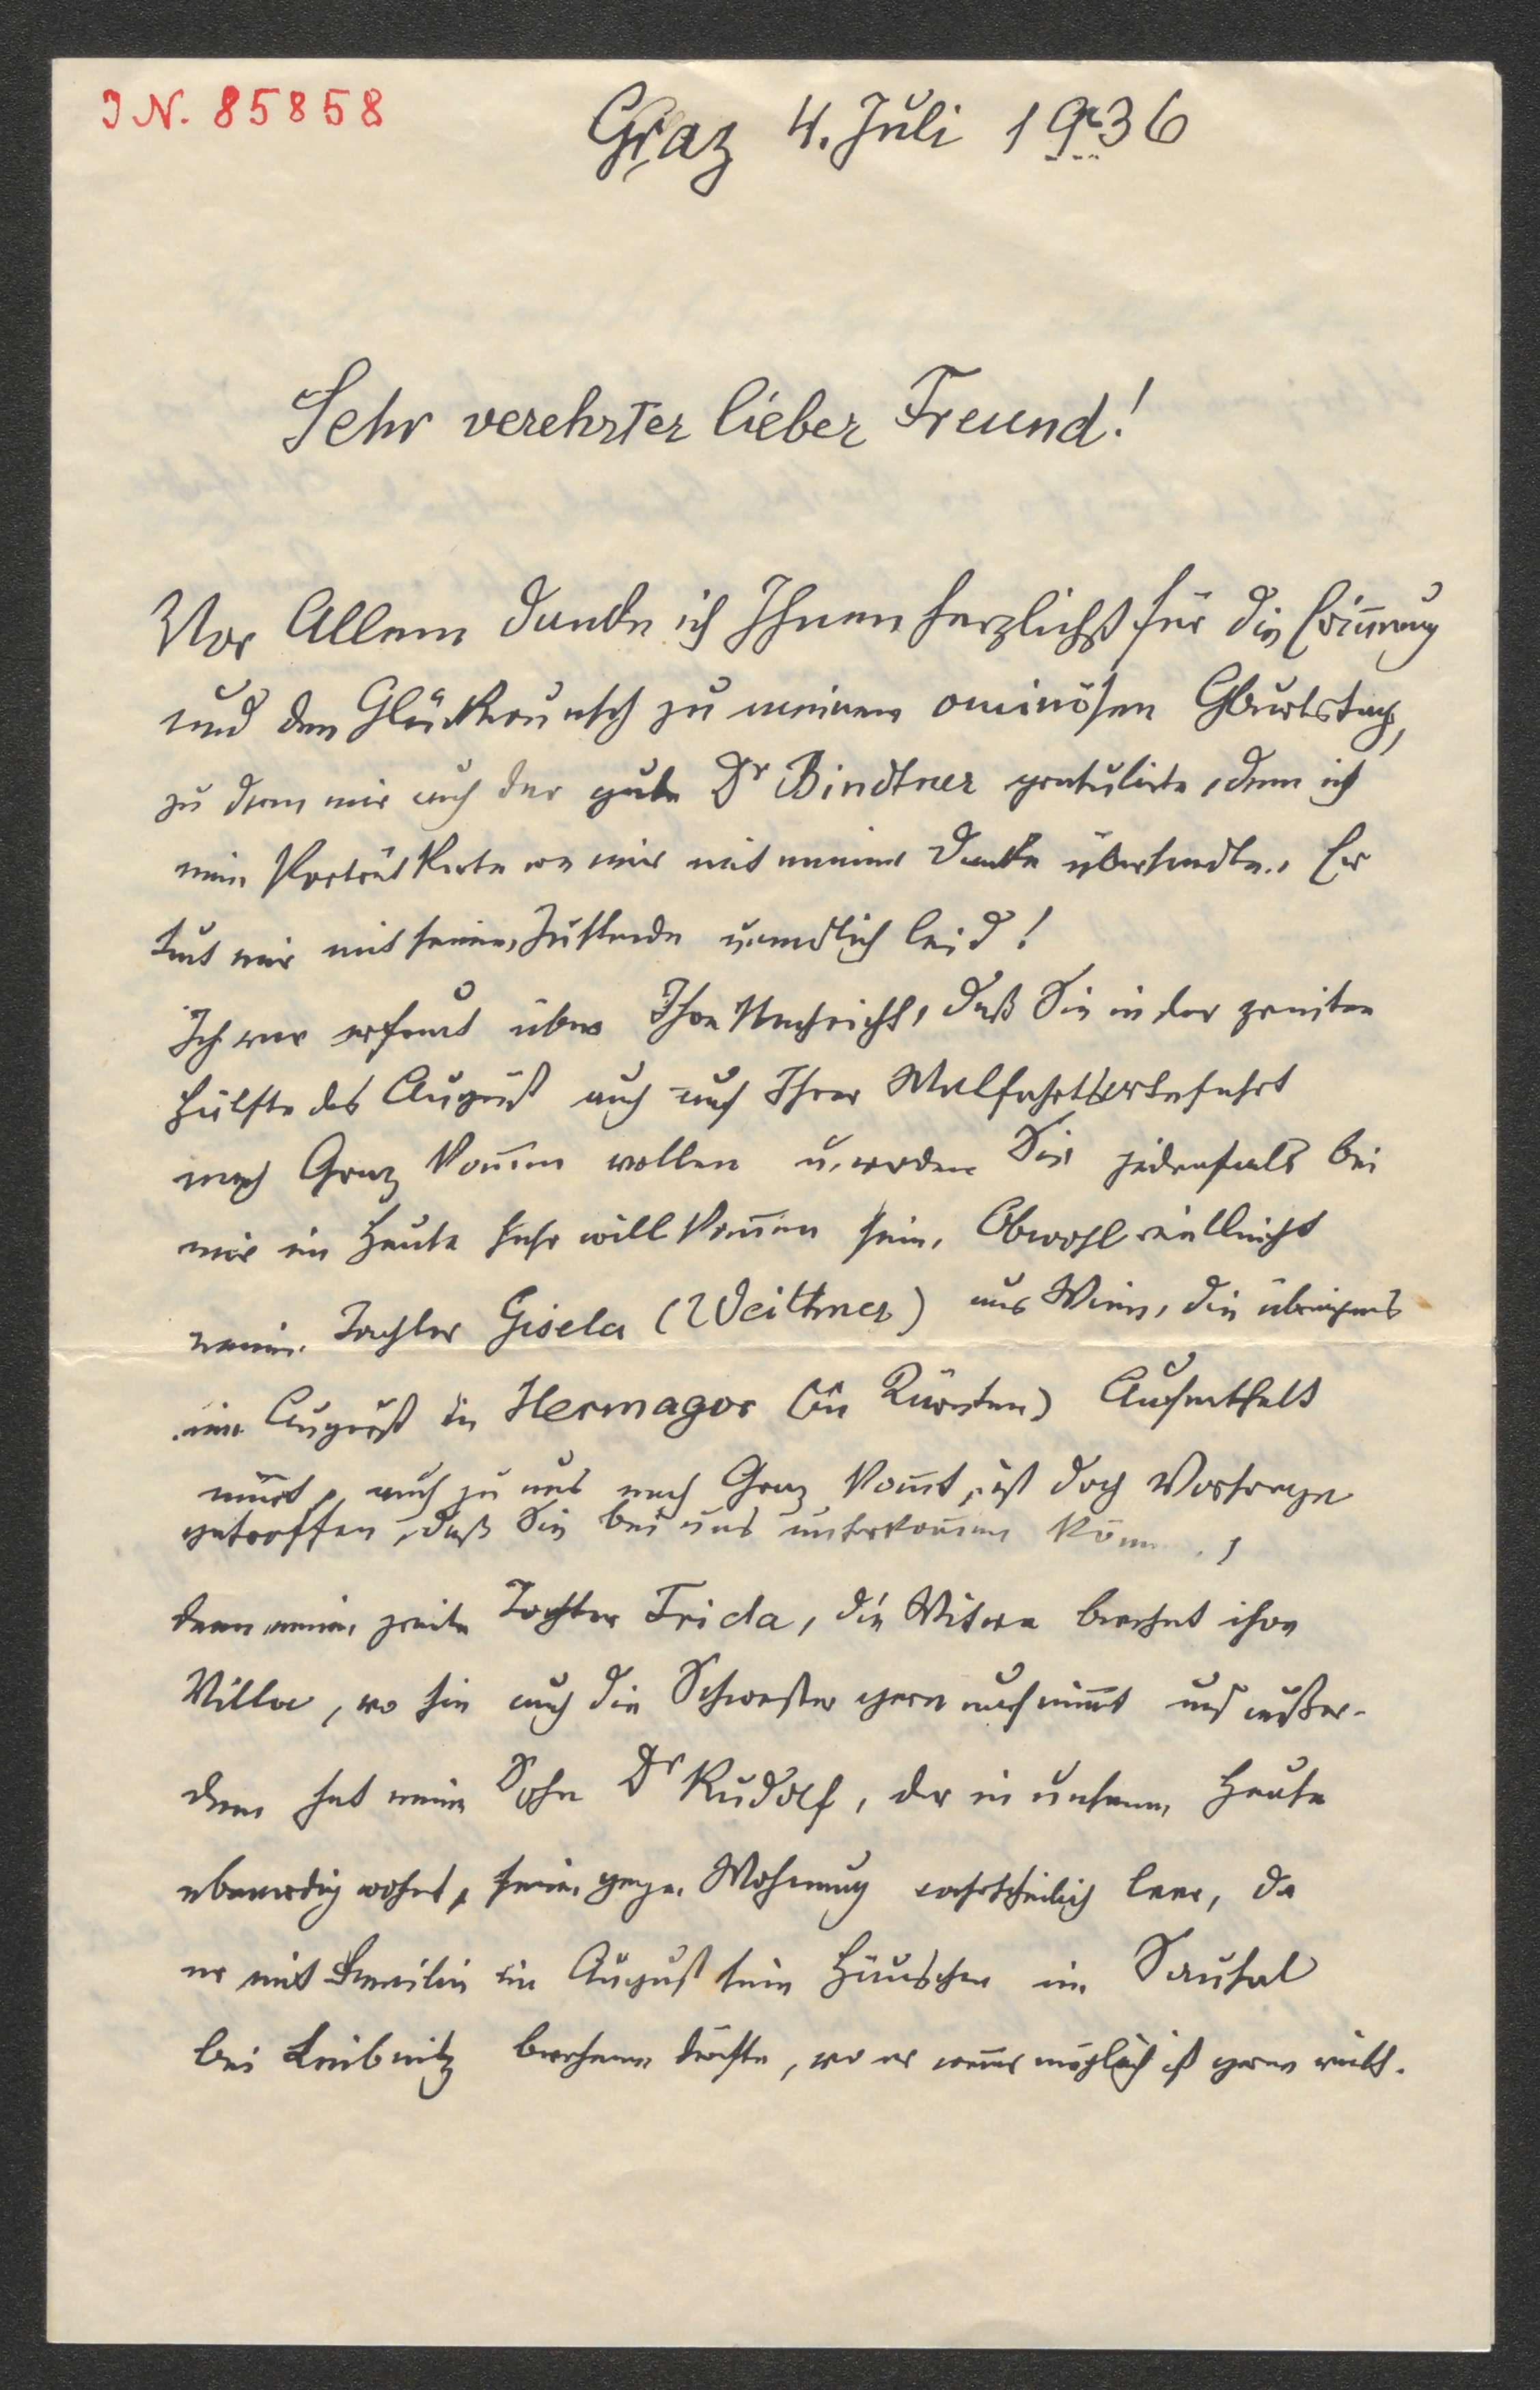 I N. 85858
Graz 4. Juli 1936
Sehr verehrter lieber Freund!
Vor Allem danke ich Ihnen herzlichst für die Erinnerung
und den Glückwunsch zu meinem ominösen Geburtstag,
zu dem mir auch der gute Dr Bindtner gratulirte, dem ich
eine Porträtkarte von mir mit meinem Danke übersandte. Er
tut mir mit seinem Zustande unendlich leid!
Ich war erfreut über Ihre Nachricht, daß Sie in der zweiten
Hälfte des August auch nach Ihrer Walfahrts
nach Graz kom̄en wollen u. werden Sie jedenfals bei
mir im Hause sehr willkom̄en sein. Obwohl vielleicht
meine Tochter Gisela (Weittner) aus Wien, die übrigens
im August in Hermagor (in Kärnten) Aufenthalt
nim̄t, auch zu uns nach Graz kom̄t, ist doch Vorsorge
getroffen, daß Sie bei uns unterkom̄en
denn meine zweite Tochter Frida, die Witwe bewohnt ihre
Villa, wo sie auch die Schwester gern aufnim̄t und außer-
dem hat mein Sohn Dr Rudolf, der in unserem Hause
ebenerdig wohnt, seine ganze Wohnung wahrscheinlich leer, da
er mit Familie im August sein Häuschen im Sausal
bei Leibnitz bewohnen dürfte, wo er wenns möglich ist gerne weilt.